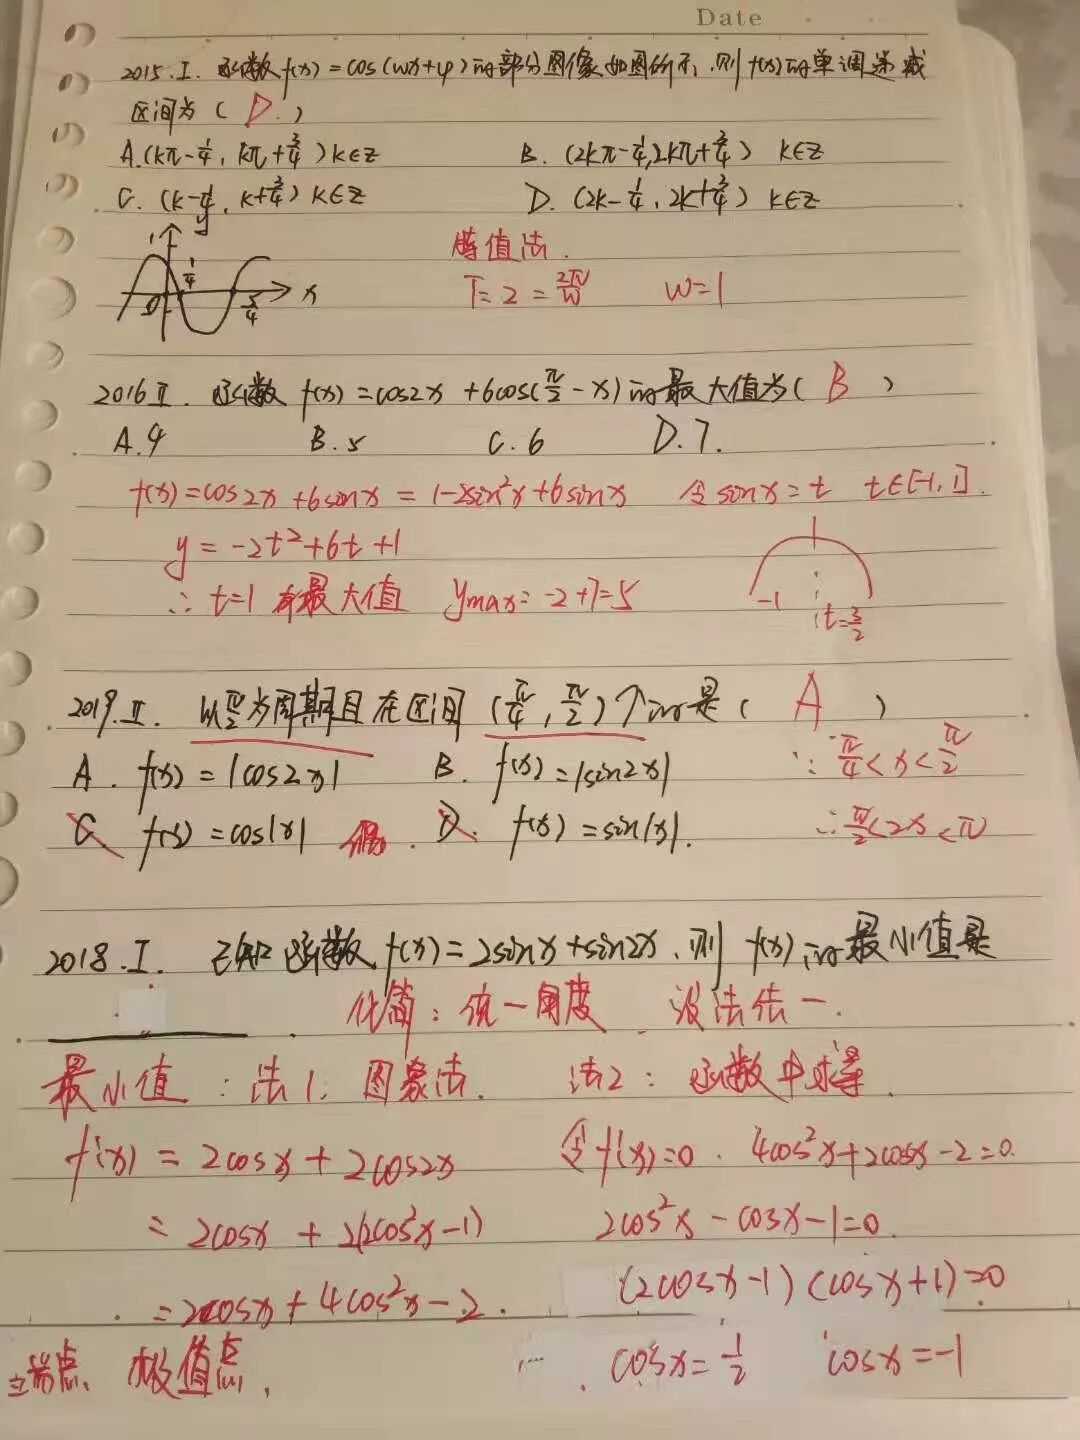 Date
2015.I. 函数f(x)=cos(wx+φ)的部分图像如图所示,则f(x)的单调递减
区间为( D. )
A.(kπ-1/4, kπ+3/4)k∈z B. (2kπ-1/4,2kπ+3/4) k∈z
C. (k-1/4, k+3/4) k∈z D. (2k-1/4, 2k+3/4) k∈z
1 y 1/4 0 5/4 x
特值法.
T=2=2π/w w=1
2016 II. 函数 f(x)=cos2x+6cos(π/2-x)的最大值为( B )
A.4 B.5 C.6 D.7.
f(x)=cos2x+6sinx=1-2sin²x+6sinx 令sinx=t t∈[-1,1].
y=-2t²+6t+1
∴ t=1 有最大值 ymax=-2+7=5
-1 1 t=3/2
2019.II. 以π/2为周期且在区间(π/4,π/2)↑的是( A )
A. f(x)=|cos2x| B. f(x)=|sin2x| ∵π/4<x<π/2
C f(x)=cos|x| 偶. D. f(x)=sin|x|. ∴π/2<2x<π
2018.I. 已知函数f(x)=2sinx+sin2x,则 f(x)的最小值是
化简:统一角度 没法统一.
最小值:法1:图象法. 法2:函数中求导.
f'(x)=2cosx+2cos2x 令f'(x)=0. 4cos²x+2cosx-2=0.
=2cosx+2(2cos²x-1) 2cos²x-cosx-1=0.
=2cosx+4cos²x-2. (2cosx-1)(cosx+1)=0
端点、极值点. cosx=1/2 cosx=-1